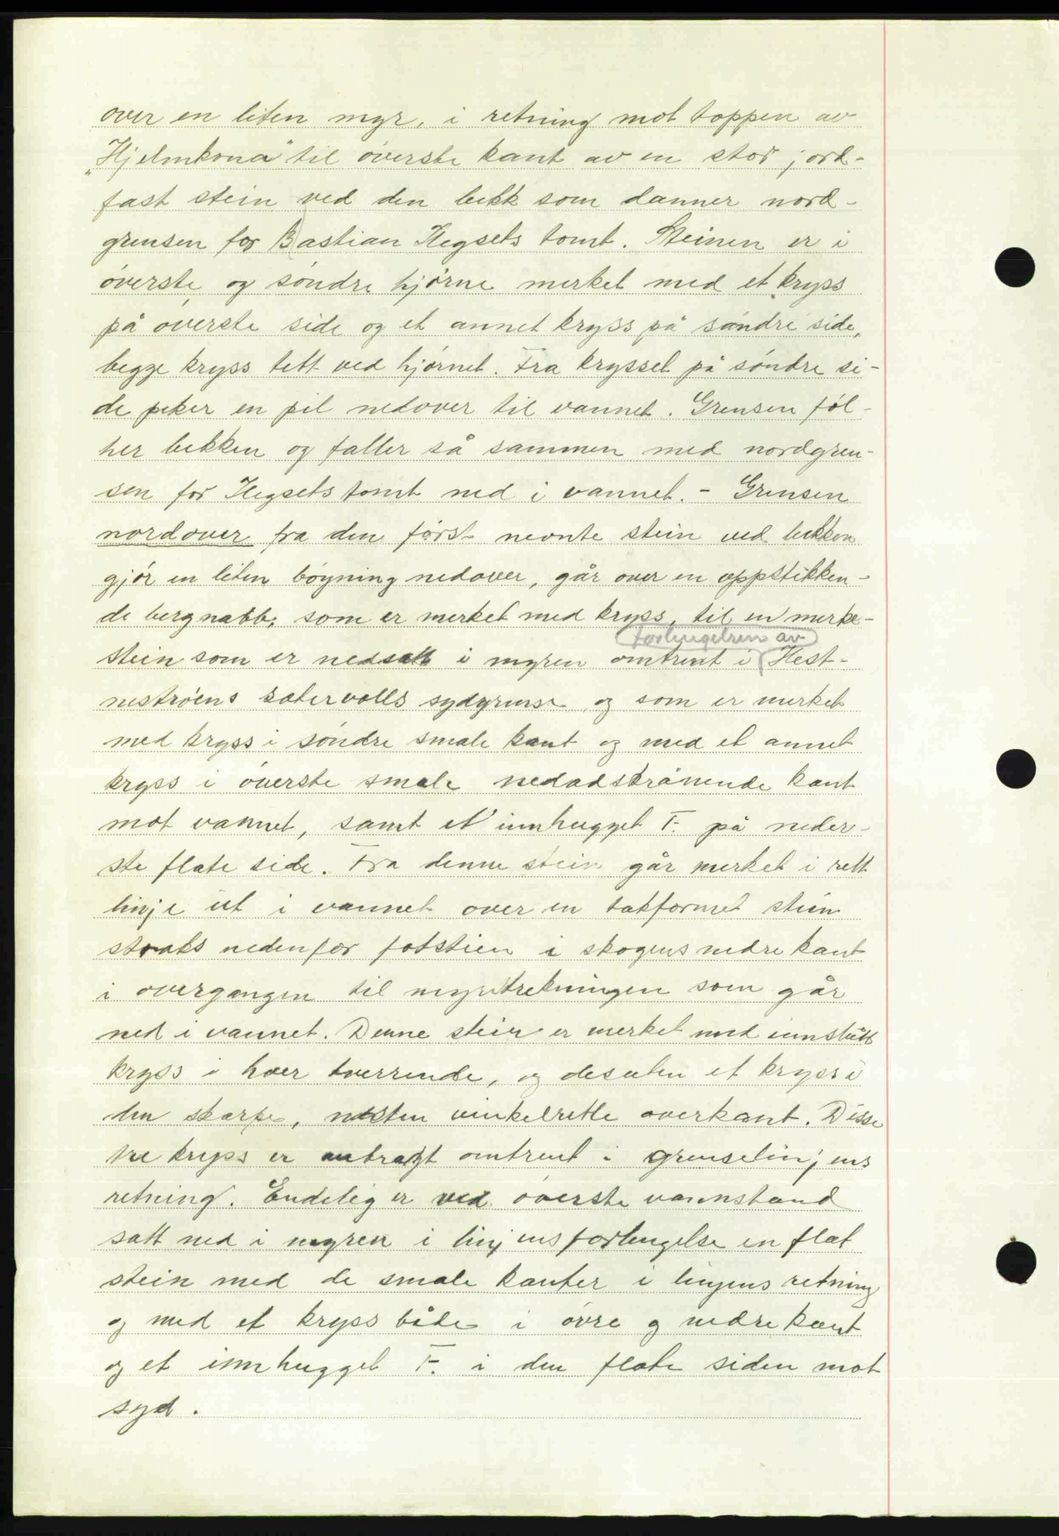 over en liten myr, i retning mot toppen av
"Hjelmkona" til överste kant av en stor jord-
fast stein ved den bekk som danner nord-
grensen for Bastian Hegsets tomt. Steinen er i
överste og söndre hjörne merket med et kryss
på överste side og et annet kryss på söndre side,
begge kryss tett ved hjörnet. Fra krysset på söndre si-
de peker en pil nedover til vannet. Grensen föl-
her bekken og faller så sammen med nordgren-
sen for Hegsets tomt ned i vannet. - Grensen
nordover fra den först nevnte stein ved bekken
gjör en liten böyning nedover, går over en oppstikken-
de bergnabb, som er merket med kryss, til en merke-
forlengelsen av
stein som er nedsatt i myren omtrent i Hest-
neströens setervolls sydgrense og som er merket
med kryss i söndre smale kant og med et annet
kryss i överste smale nedadskrånende kant
mot vannet, samt et innhugget F. på neder-
ste flate side. Fra denne stein går merket i rett
linje ut i vannet over en takformet stein
straks nedenfor fotstien i skogens nedre kant
i overgangen til myrstrekningen som går
ned i vannet. Denne stein er merket med innslått
kryss i hver tverrende, og desuten et kryss i
den skarpe, nesten vinkelrette overkant. Disse
tre kryss er anbragt omtrent i grenselinjens
retning. Endelig er ved överste vannstand
satt ned i myren i linjens forlengelse en flat
stein med de smale kanter i linjens retning
og med et kryss både i övre og nedre kant
og et innhugget F. i den flate siden mot
syd.